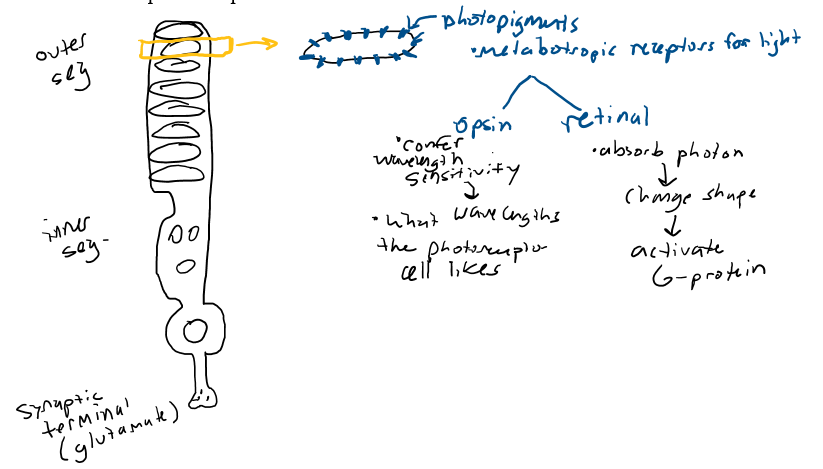 outer
seg
photopigments
•metabotropic receptors for light
opsin
•confer
wavelength
sensitivity
•what wavelengths
the photoreceptor
cell likes
retinal
•absorb photon
change shape
activate
G-protein
inner
seg-
synaptic
terminal
(glutamate)